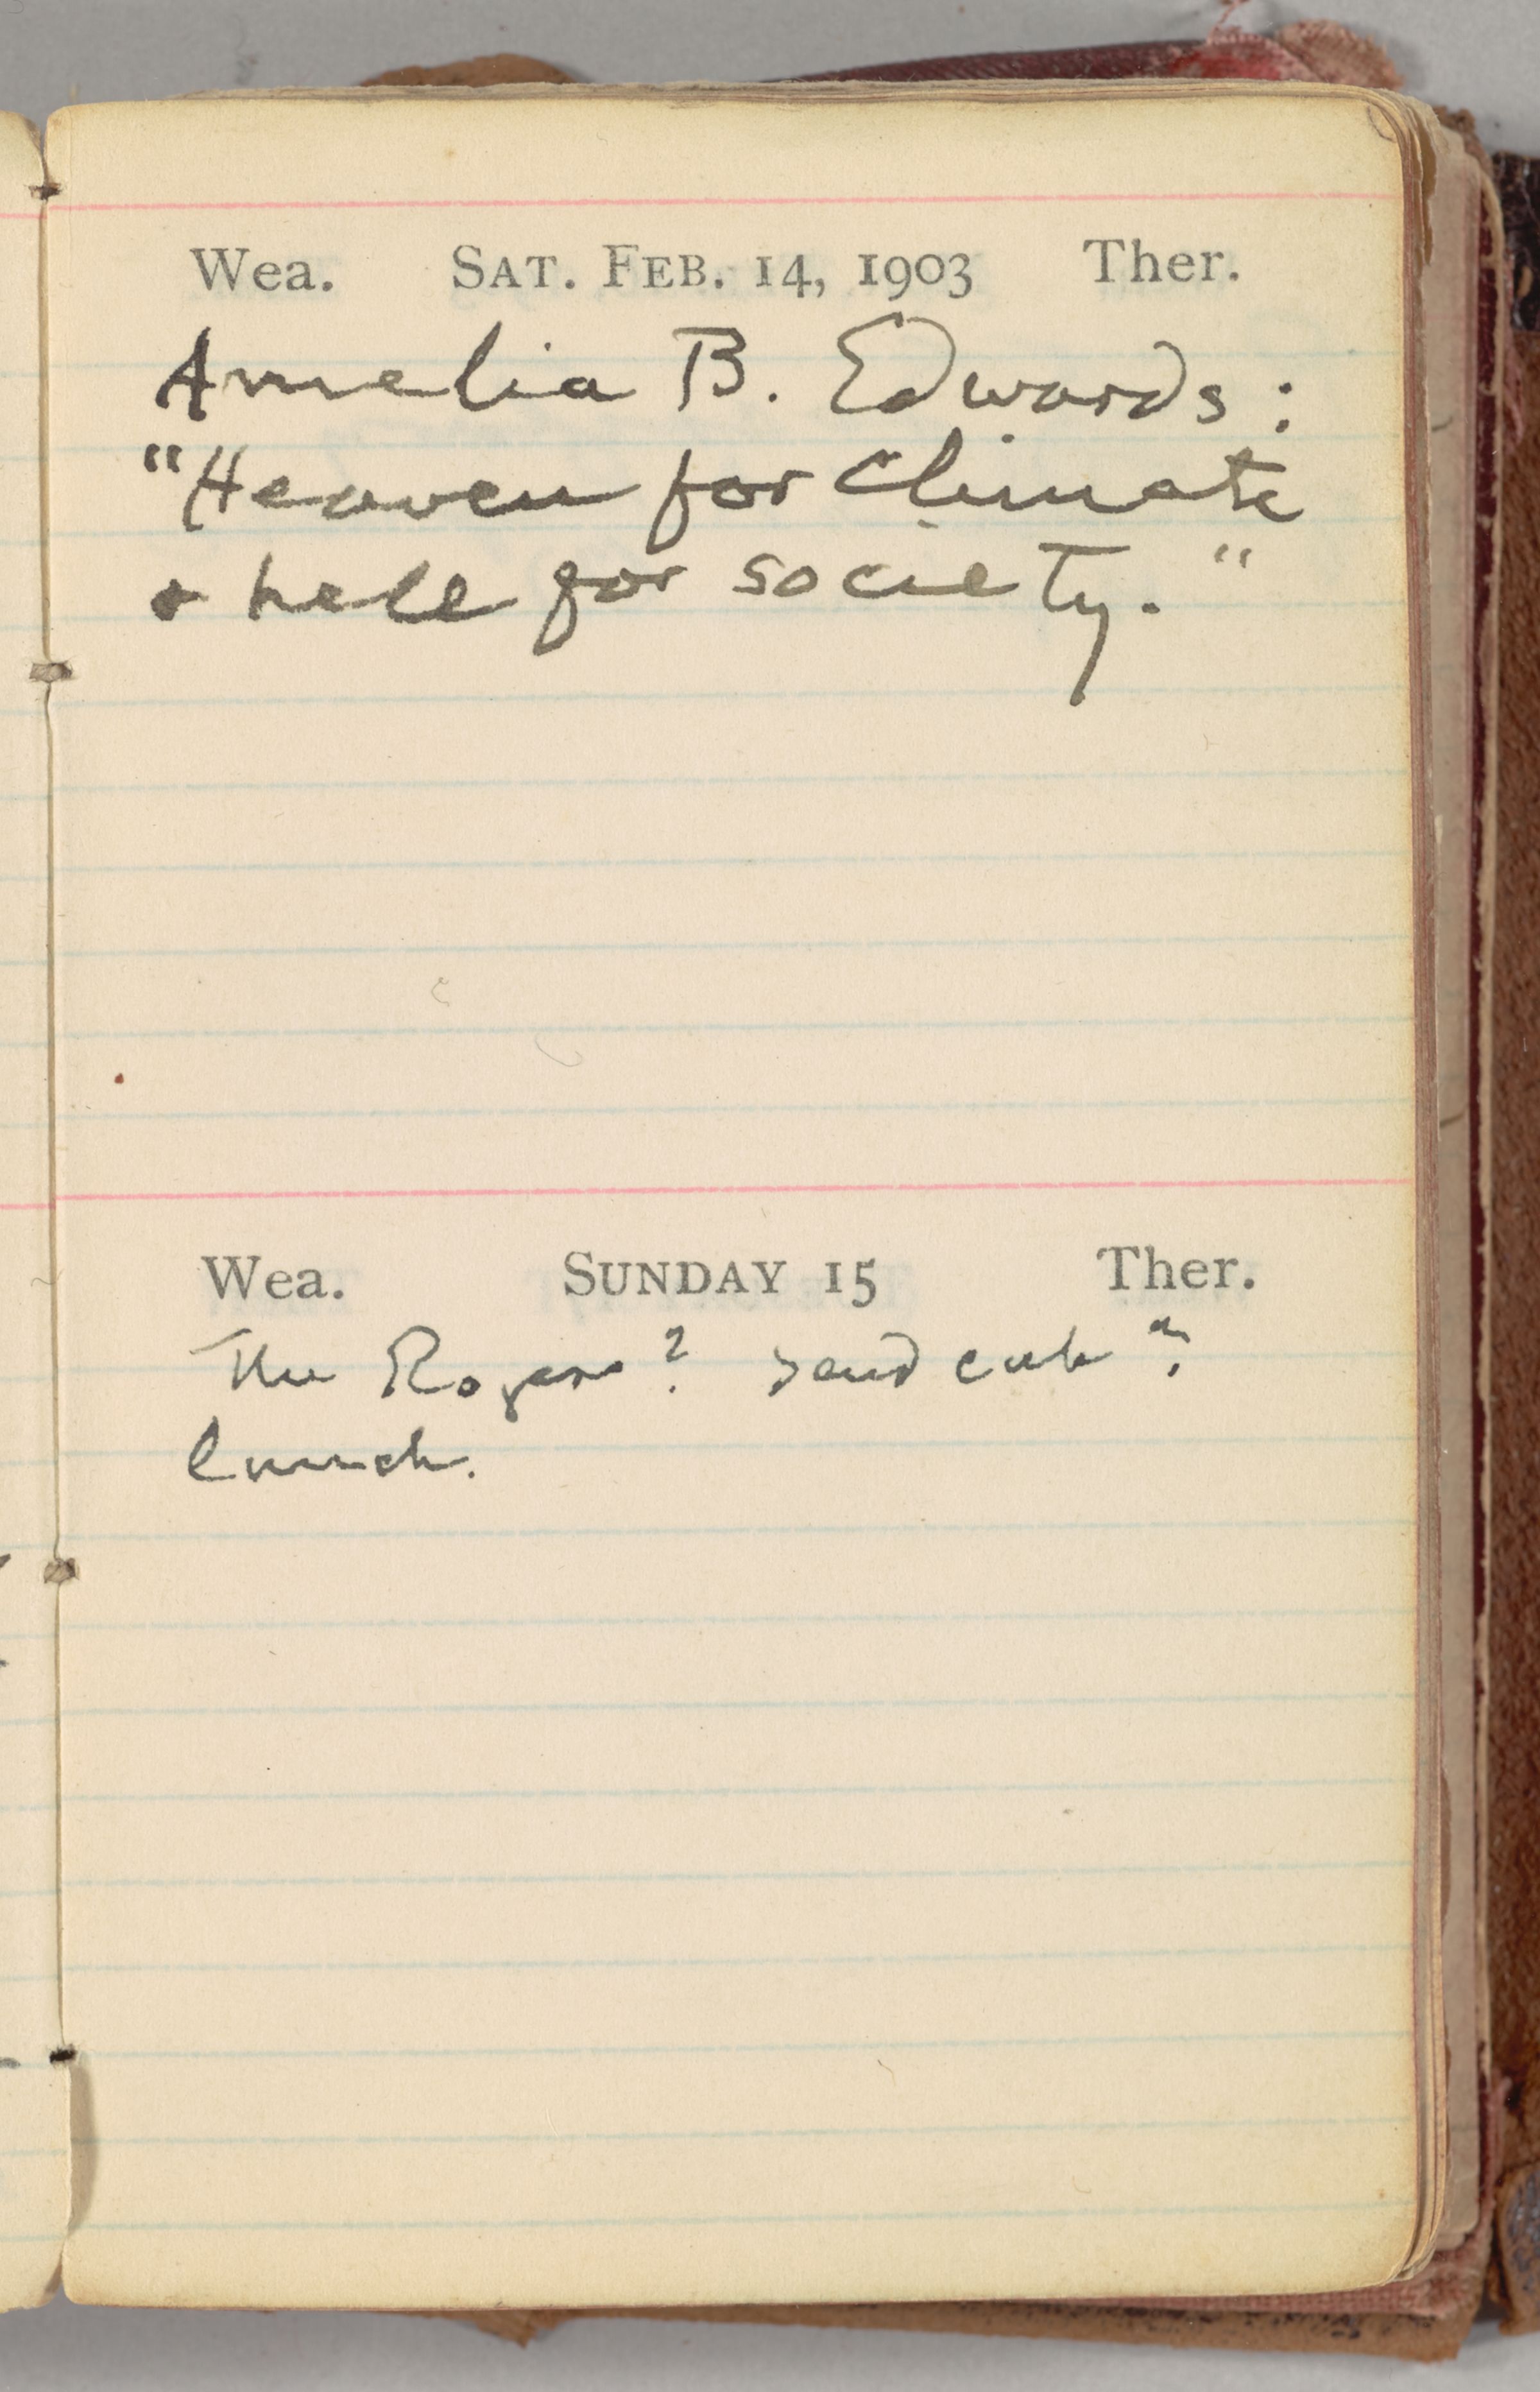 Wea. SAT. FEB. 14, 1903 Ther.
Amelia B. Edwards:
"Heaven for climate
& hell for society."
Wea. SUNDAY 15 Ther.
The Rogers? Send cab?
lunch.